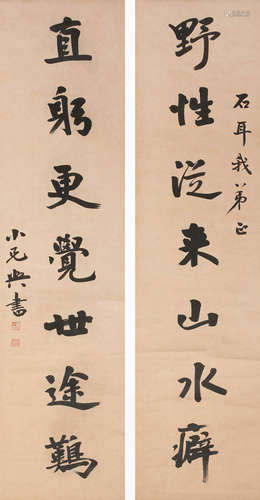 石耳我弟正
野性從来山水癖
直躬更覺世途難
書